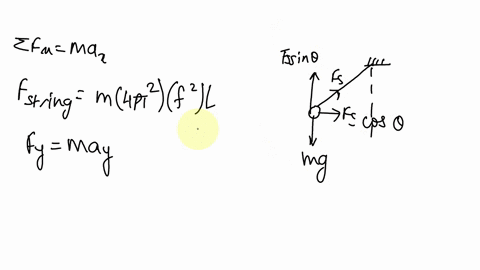 ΣFx = max
Fstring = m(4π²)(f²)L
Fy = may
Fssinθ
Fs
Fs cos θ
mg